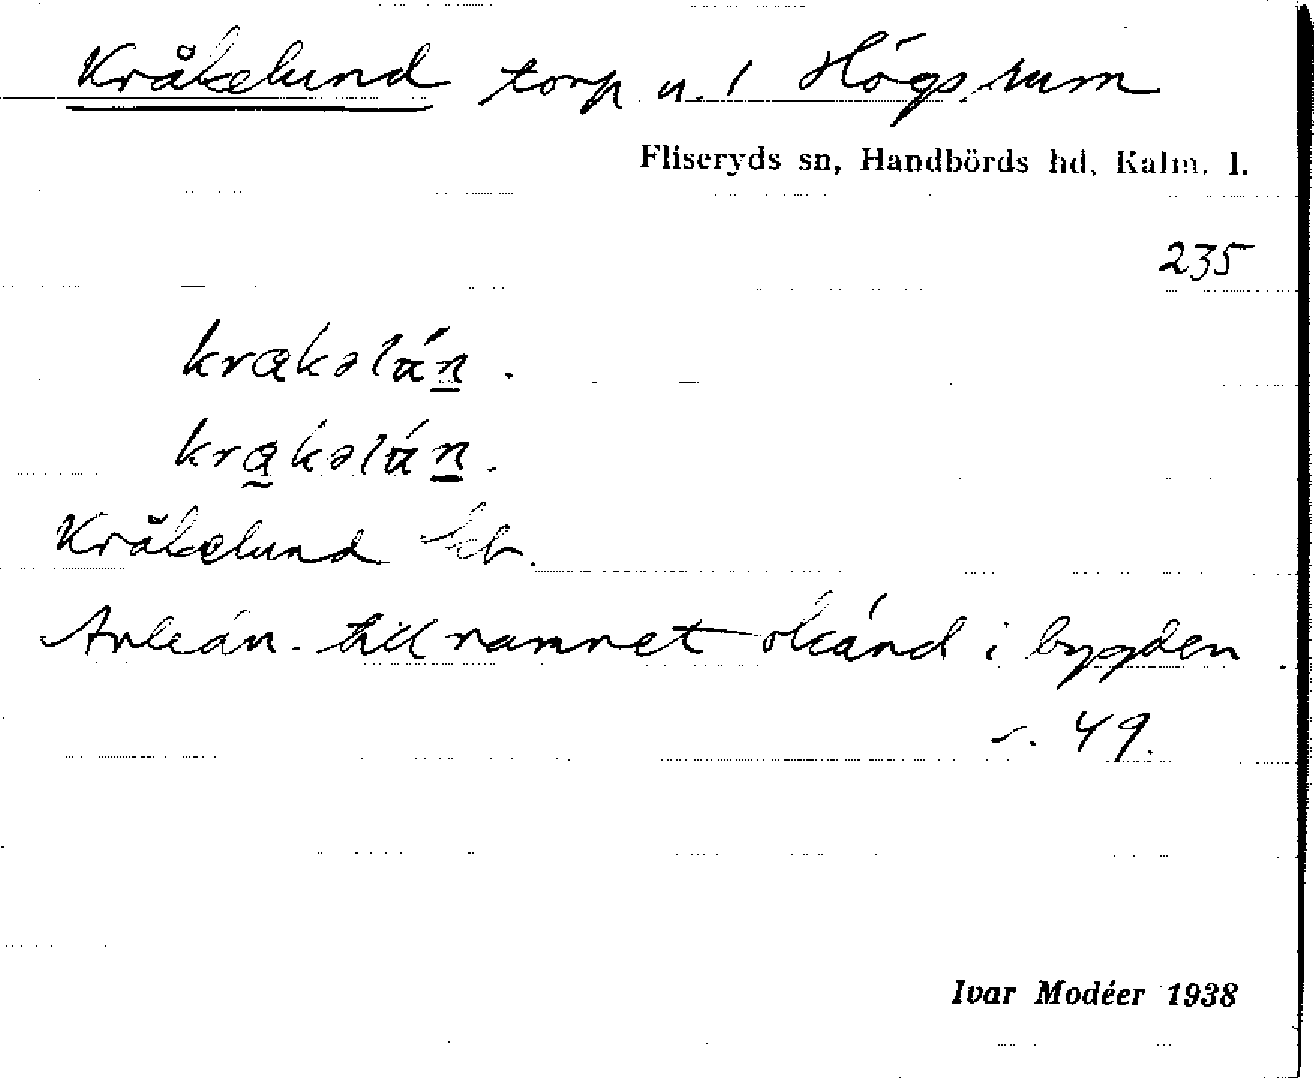 Kråkelund torp u. 1 Högsrum
Fliseryds sn, Handbörds hd, Kalm. l.
235
krakəlún.
krakəlún.
Kråkelund kb.
Anledn. till namnet okänd i bygden.
s. 49.
Ivar Modéer 1938